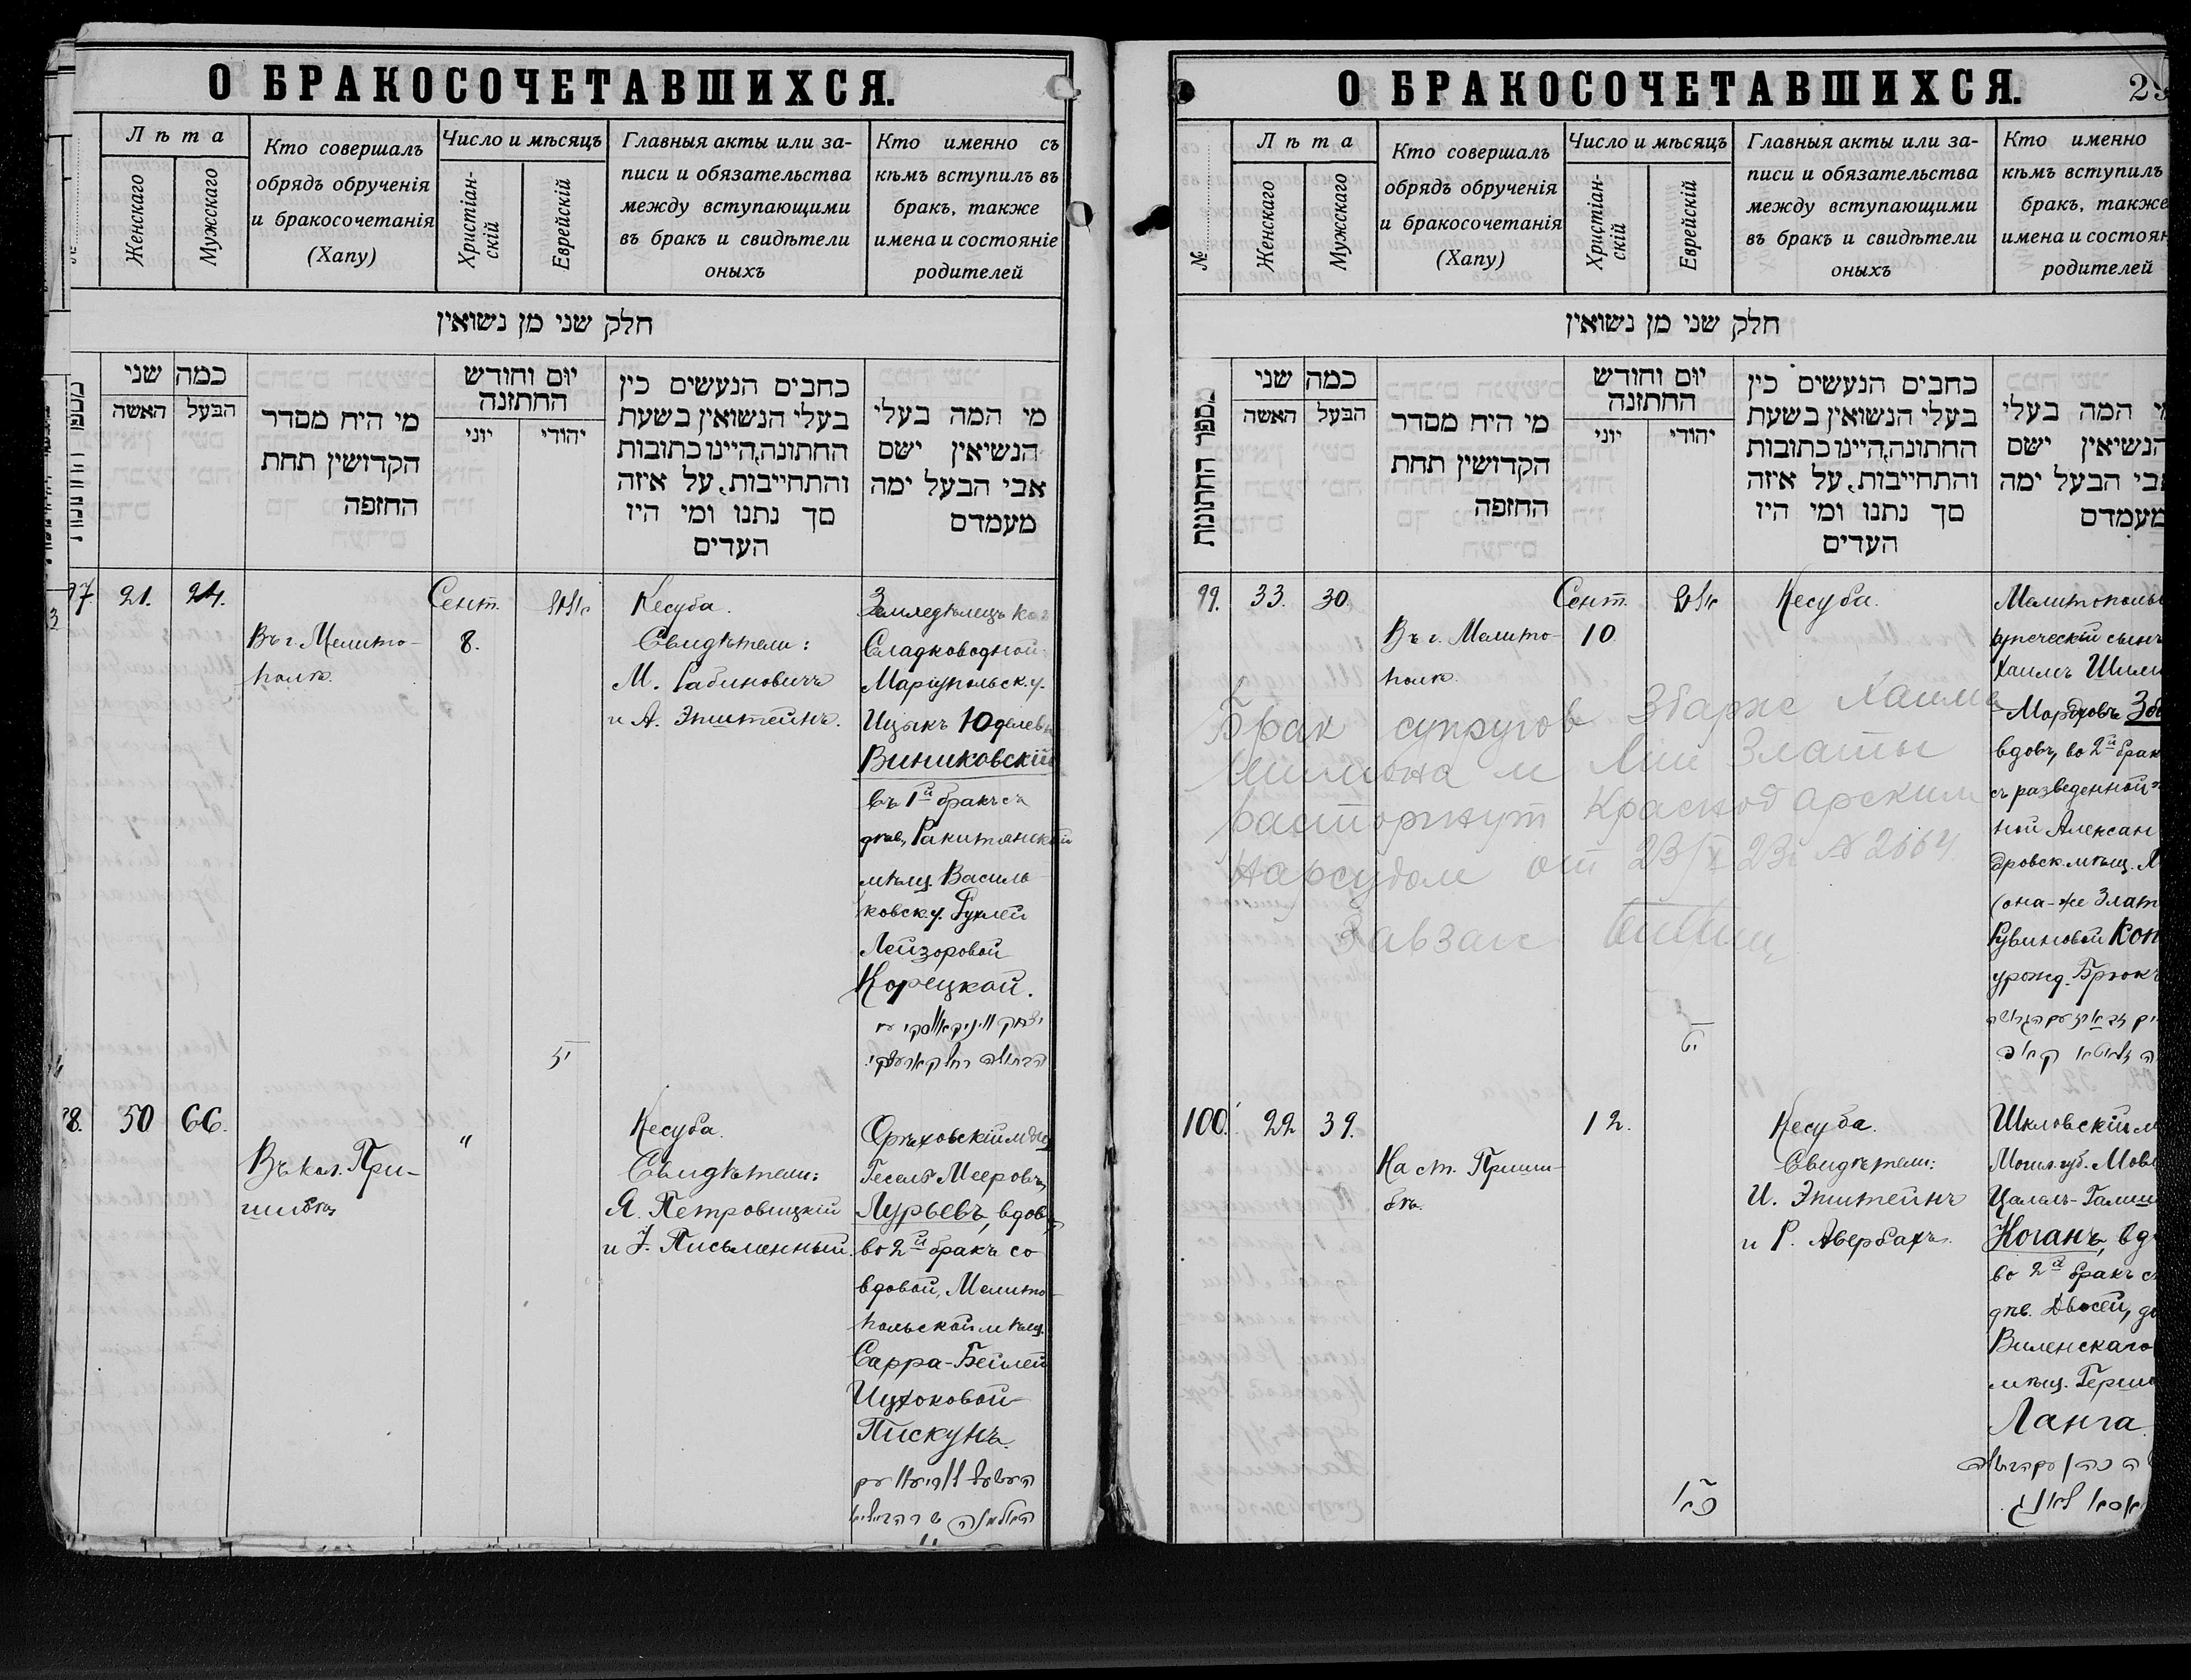 О БРАКОСОЧЕТАВШИХСЯ.
Лѣта
Женскаго
Мужскаго
Кто совершалъ
обрядъ обрученія
и бракосочетанія
(Хапу)
Число и мѣсяцъ
Христіан-
скій
Еврейскій
Главныя акты или за-
писи и обязательства
между вступающими
въ бракъ и свидѣтели
оныхъ
Кто именно съ
кѣмъ вступилъ въ
бракъ, также
имена и состояніе
родителей
חלק שני מן נשואין
כמה שני
האשה
הבעל
מי היח מסדר
הקדושין תחת
החזפה
יום וחודש
החתזנה
יוני
יהודי
כחבים הנעשים כין
בעלי הנשואין בשעת
החתונה,היינו כתובות
והתחייבות, על איזה
סך נתנו ומי היז
העדים
מי המה בעלי
הנשיאין ישם
אבי הבעל ימה
מעמדם
97.
21.
24.
Въ г. Мелито-
полѣ.
Сент.
8.
Кесуба.
Свидѣтели:
М. Рабиновичъ
и А. Эпштейнъ.
Земледѣлецъ кол
Сладководной
Маріупольск. у.
Ицыкъ Юделевъ
Виниковскій
въ 1й бракъ съ
дѣв. Ракитянской
мѣщ. Василь-
ковск. у. Рухлей
Лейзоровой
Корецкой.
98.
50
66.
Въ кол. При-
шибѣ
"
Кесуба.
Свидѣтели:
Я. Петровицкій
и І. Письменный.
Орѣховскій мѣщ
Гесель Мееровъ
Лурьевъ, вдов
во 2й бракъ со
вдовой, Мелито-
польской мѣщ.
Сарра-Бейлей
Ицхоковой
Пискунъ.
О БРАКОСОЧЕТАВШИХСЯ.
№
Лѣта
Женскаго
Мужскаго
Кто совершалъ
обрядъ обрученія
и бракосочетанія
(Хапу)
Число и мѣсяцъ
Христіан-
скій
Еврейскій
Главныя акты или за-
писи и обязательства
между вступающими
въ бракъ и свидѣтели
оныхъ
Кто именно
кѣмъ вступилъ
бракъ, также
имена и состоян
родителей
חלק שני מן נשואין
מספר החתונות
כמה שני
האשה
הבעל
מי היח מסדר
הקדושין תחת
החזפה
יום וחודש
החתזנה
יוני
יהודי
כחבים הנעשים כין
בעלי הנשואין בשעת
החתונה,היינו כתובות
והתחייבות, על איזה
סך נתנו ומי היז
העדים
מי המה בעלי
הנשיאין ישם
אבי הבעל ימה
מעמדם
99.
33.
30.
Въ г. Мелито-
полѣ.
Сент.
10.
Кесуба.
Мелитополь
купеческій сынъ
Хаимъ Шлим
Мордховъ Зба
вдовъ, во 2й брак
съ разведенной
ной Алексан
дровск. мѣщ. Л
(она-же Злат
Рувиновой Коп
урожд. Брюкъ
Брак супругов Збарже Хаима
Шлиона и Лии Златы
расторгнут Краснодарским
Нарсудом от 23/V 23г № 2664
Завзагс
100.
22
39.
На ст. Приши-
бѣ.
12.
Кесуба.
Свидѣтели:
И. Эпштейнъ
и Р. Авербахъ.
Шкловскій м
Могил. губ. Мов
Цалель-Галиш
Коганъ, вд
во 2й бракъ с
дѣв. Двосей, до
Виленскаго
мѣщ. Герш
Ланга.